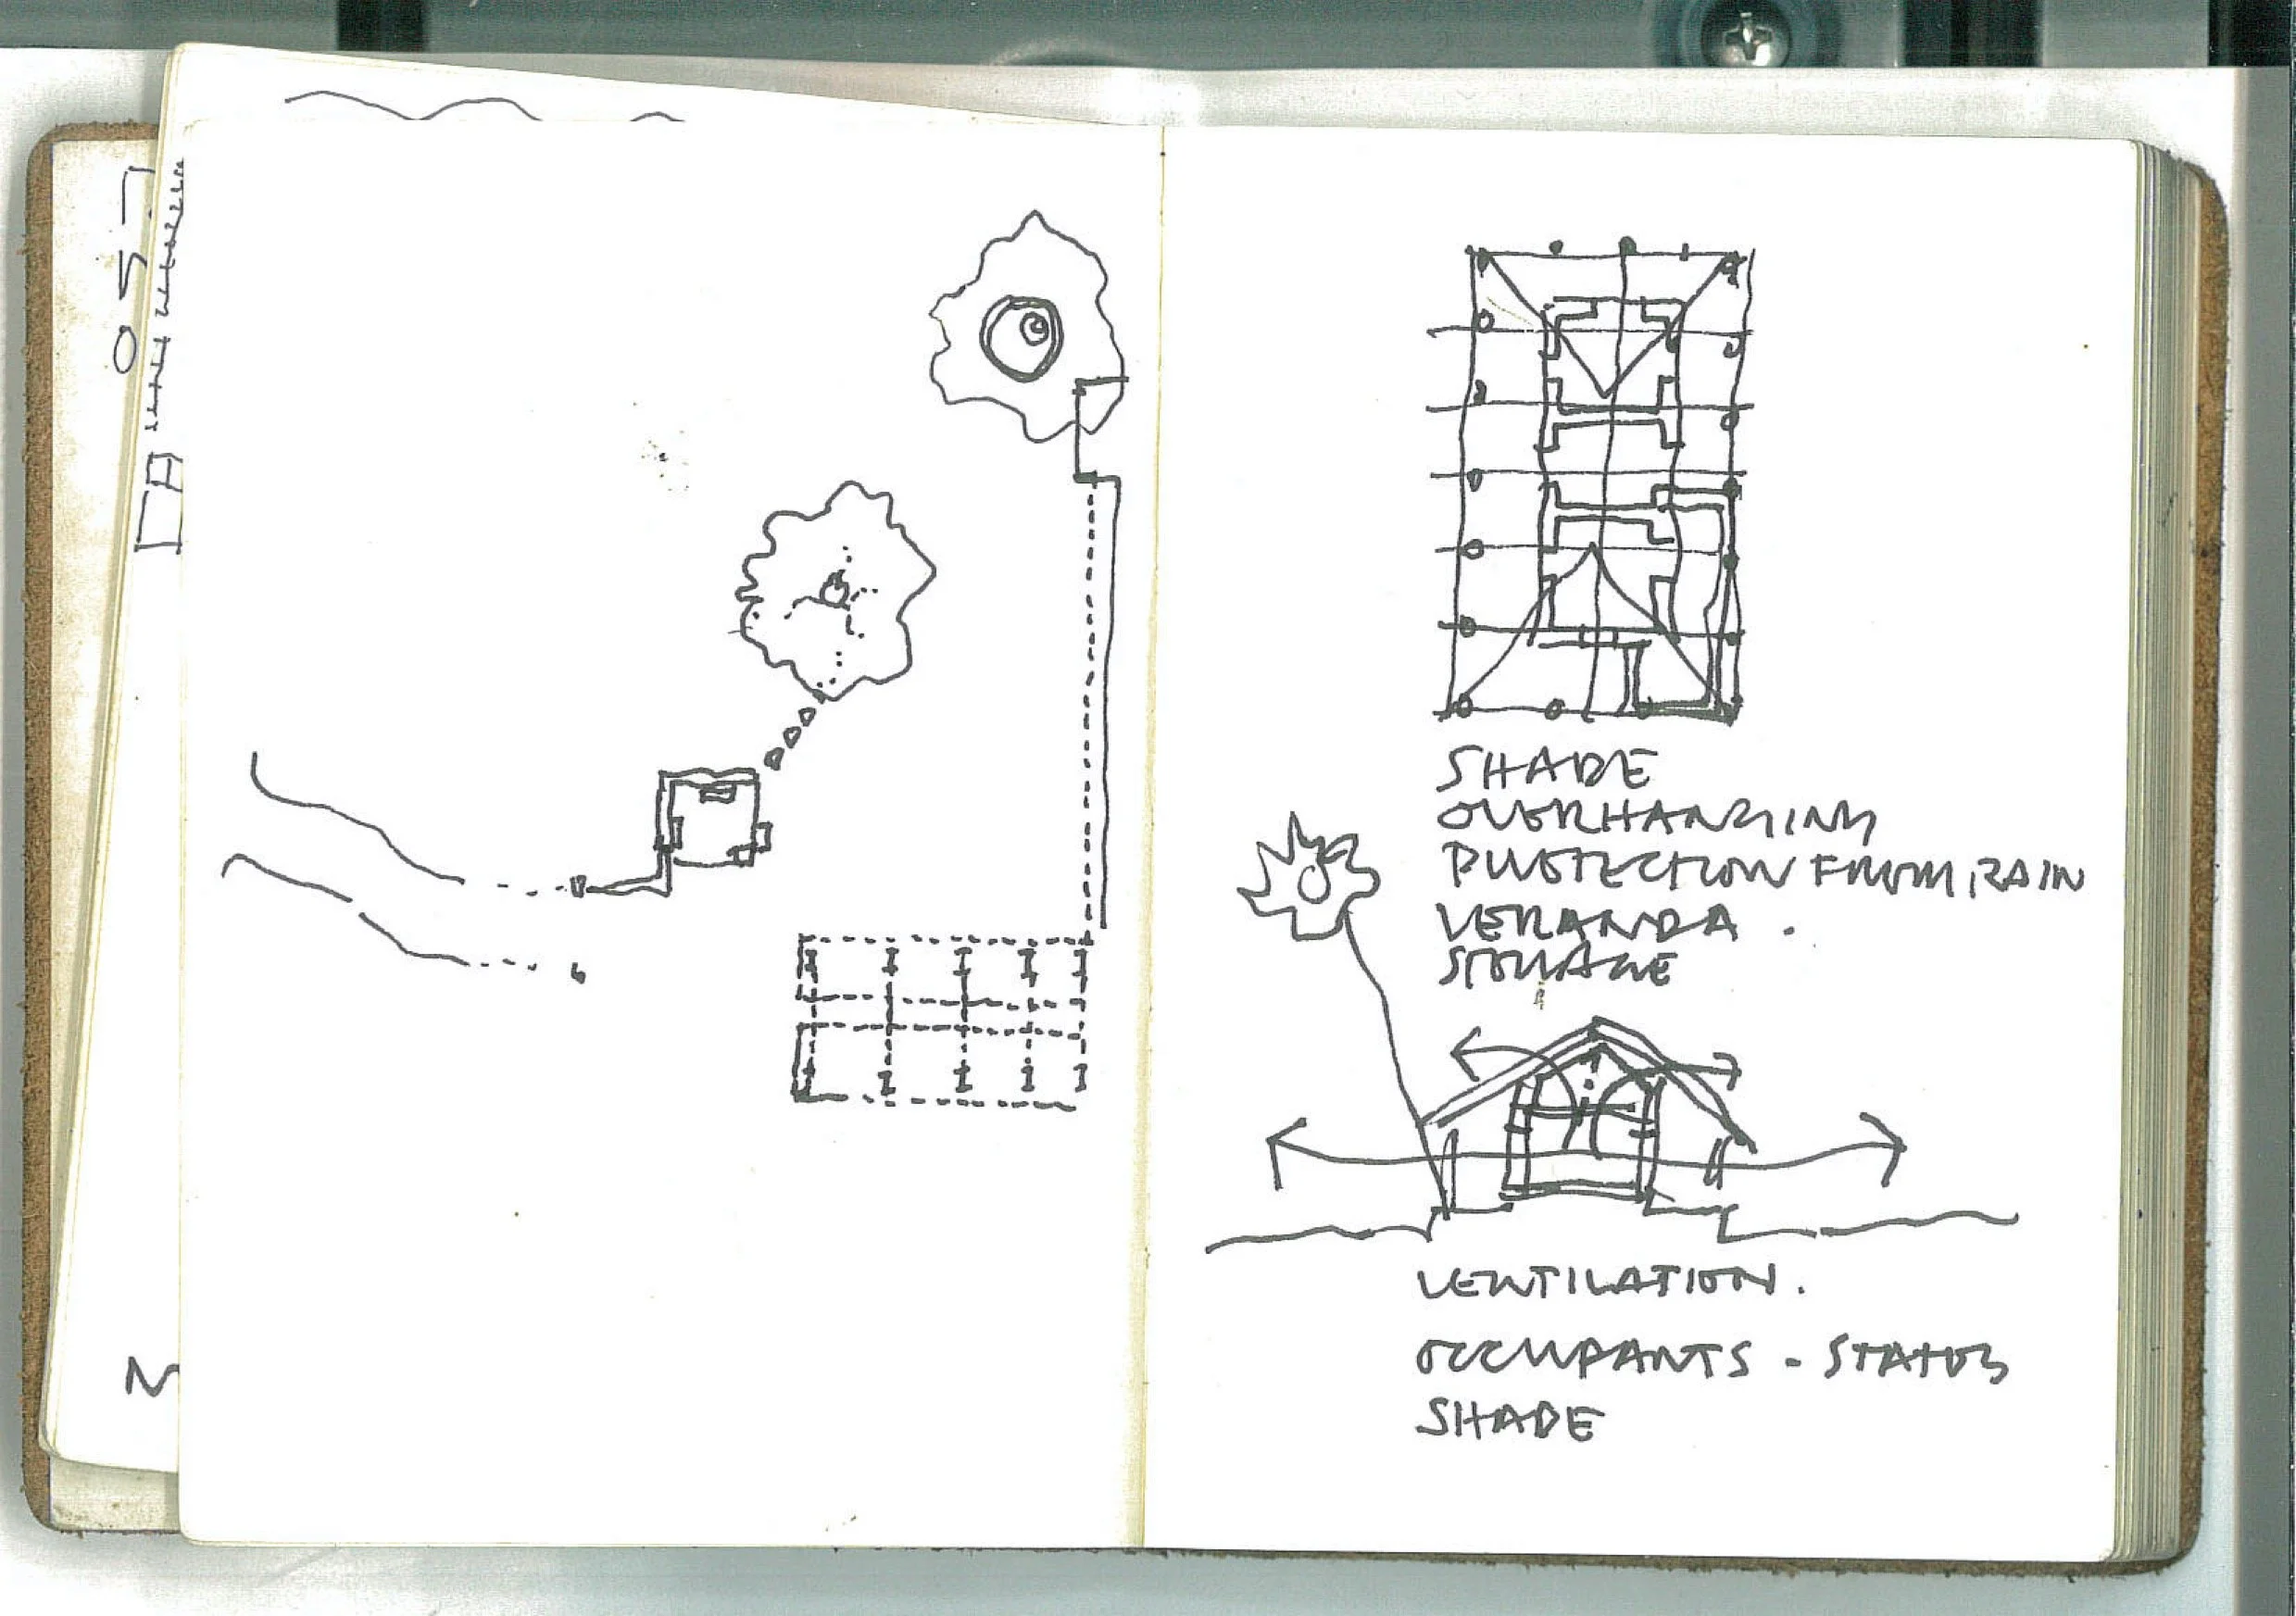 SHADE
OVERHANGING
PROTECTION FROM RAIN
VERANDA .
STORAGE
VENTILATION.
OCCUPANTS - STATUS
SHADE